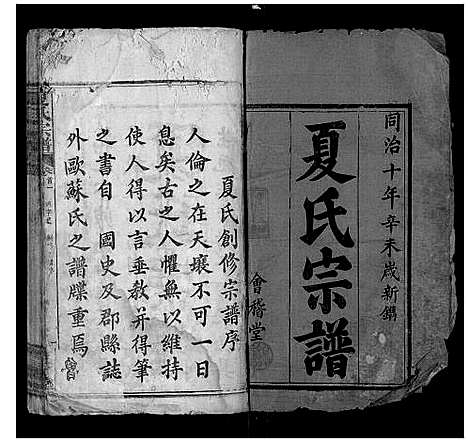 同治十年辛未歲新鐫
夏氏宗譜
會稽堂
夏氏創修宗譜序
人倫之在天壤不可一日
息矣古之人懼無以維持
使人得以言垂教并得筆
之書自　國史及郡縣誌
外歐蘇氏之譜牒重焉